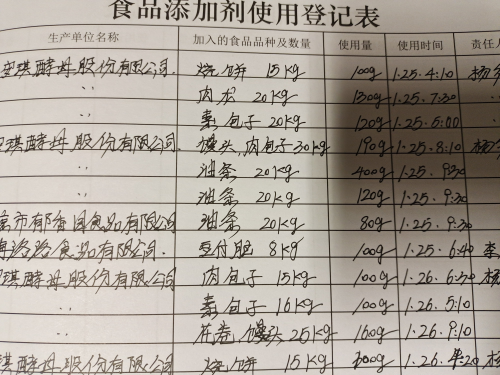 食品添加剂使用登记表
生产单位名称 加入的食品品种及数量 使用量 使用时间 责任人
琪酵母股份有限公司. 烧饼 15kg 100g 1.25.4:10 杨
〃 肉松 20kg 130g 1.25.7:30
〃 素包子 20kg 120g 1.25.5:00
琪酵母股份有限公司. 馒头,肉包子30kg 190g 1.25.8:10 杨
油条 20kg 400g 1.25.9:30
〃 油条 20kg 120g 1.25.9:30
市郁香园食品有限公司 油条 20kg 80g 1.25.9:30
洛洛食品有限公司. 豆付脑 8kg 100g 1.25.6:40 李
琪酵母股份有限公司 肉包子 15kg 100g 1.26.6:30 杨
〃 素包子 16kg 100g 1.26.5:10
〃 花卷 馒头 25kg 160g 1.26.9:10
琪酵母股份有限公司 烧饼 15kg 1.26. 杨